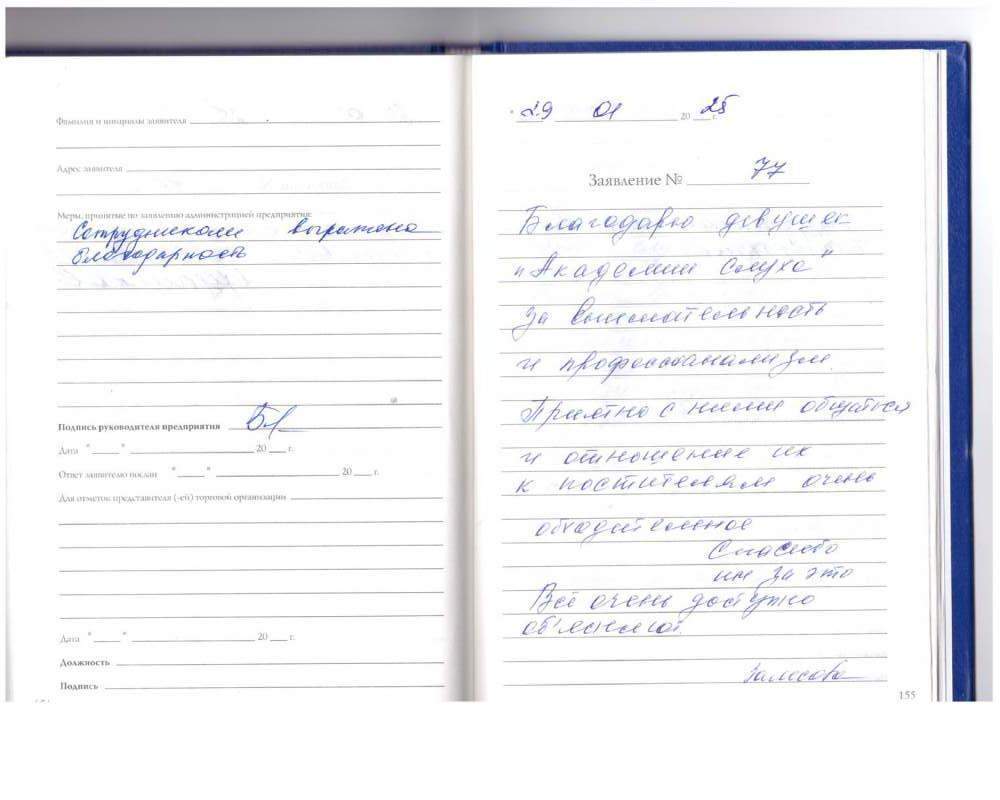 Фамилия и инициалы заявителя
Адрес заявителя
Меры, принятые по заявлению администрацией предприятия:
Сотрудникам выражена
благодарность
Подпись руководителя предприятия
Дата " " 20 г.
Ответ заявителю послан " " 20 г.
Для отметок представителя (-ей) торговой организации
Дата " " 20 г.
Должность
Подпись
29 01 2025 г.
Заявление № 77
Благодарю девушек
"Академии слуха"
за внимательность
и профессионализм.
Приятно с ними общаться
и отношение их
к посетителям очень
обходительное
Спасибо
им за это
Всё очень доступно
объясняют.
155